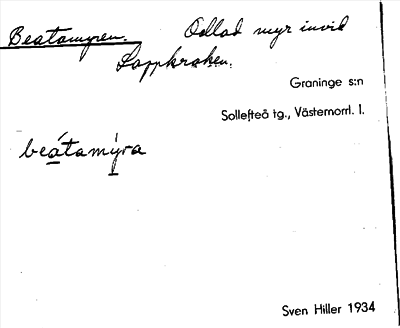 Beatamyren. Odlad myr invid
Lappkroken.
Graninge s:n
Sollefteå tg., Västernorrl. l.
beátamýra
Sven Hiller 1934